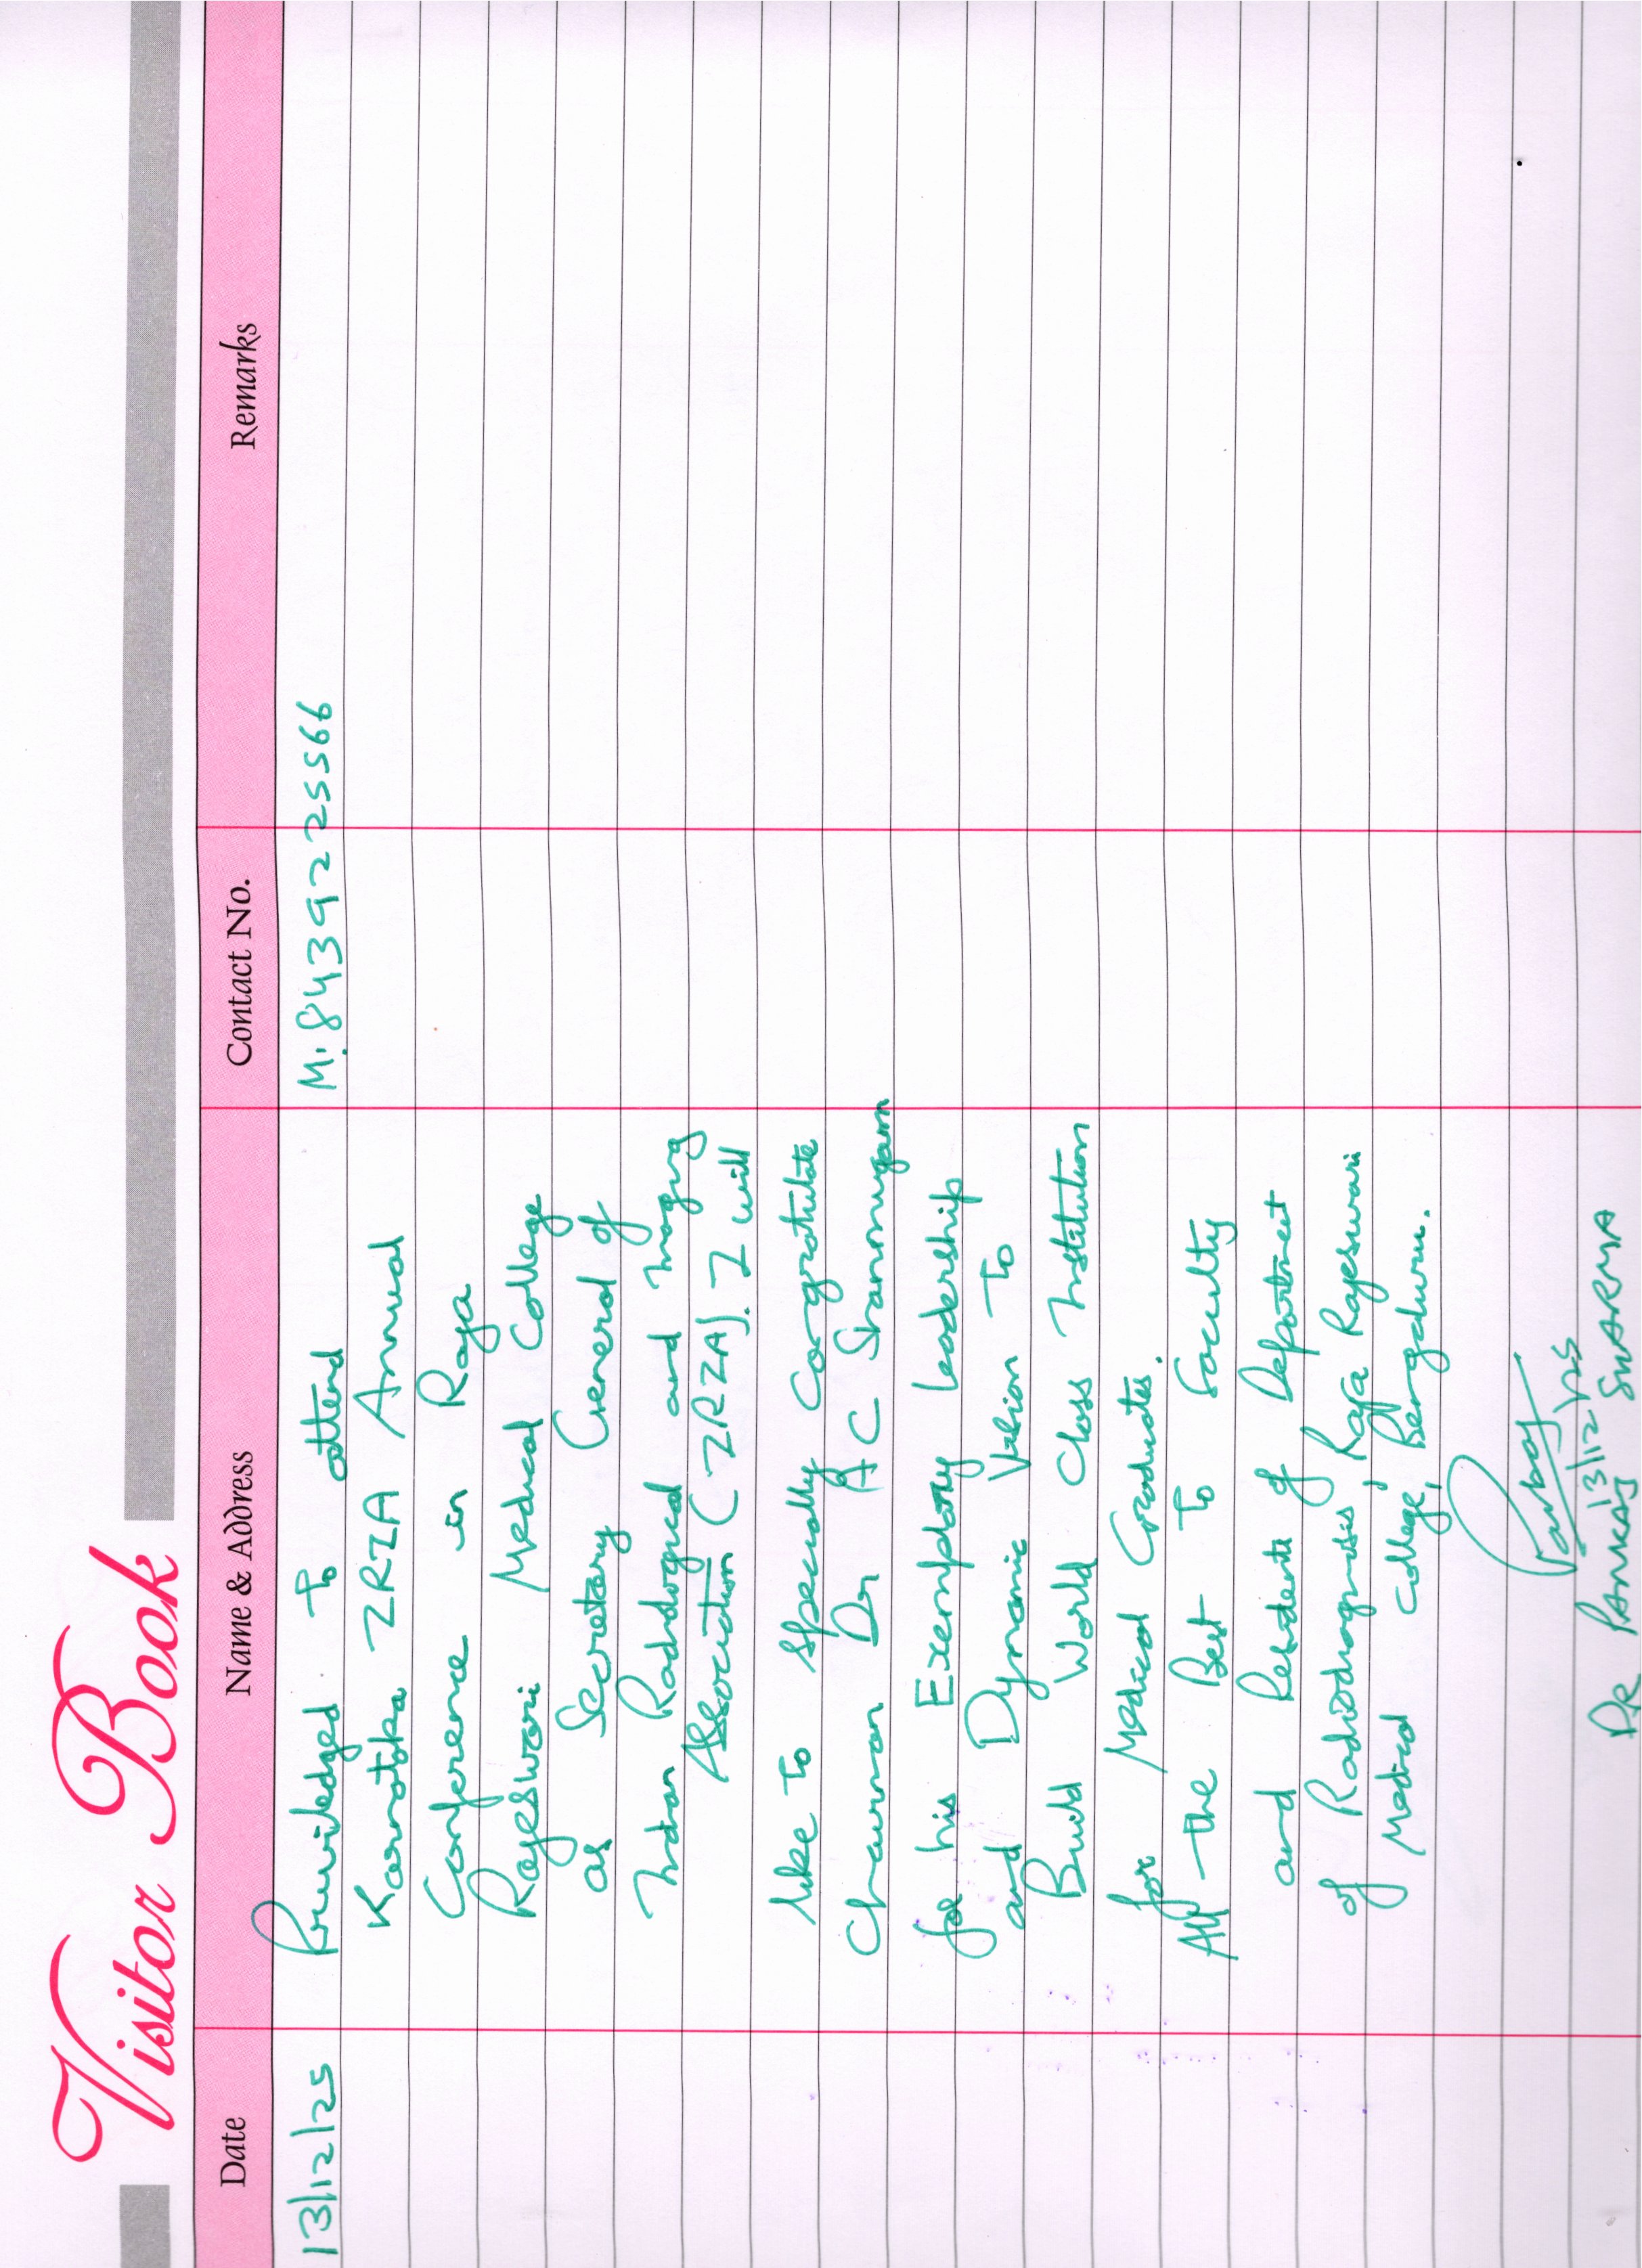 Visitor Book
Date Name & Address Contact No. Remarks
13/12/25 Priviledged to attend M. 8439225566
Karnataka IRIA Annual
Conference in Raja
Rajeswari Medical College
as Secretary General of
Indian Radiological and Imaging
Association (IRIA). I will
like to specially Congratulate
Chairman Dr A C Shanmugam
for his Exemplary leadership
and Dynamic Vision To
Build World Class Institution
for Medical Graduates.
All the Best To Faculty
and Residents of Department
of Radiodiagnosis, Raja Rajeswari
Medical College, Bengaluru.
Pankaj
13/12/25
DR PANKAJ SHARMA